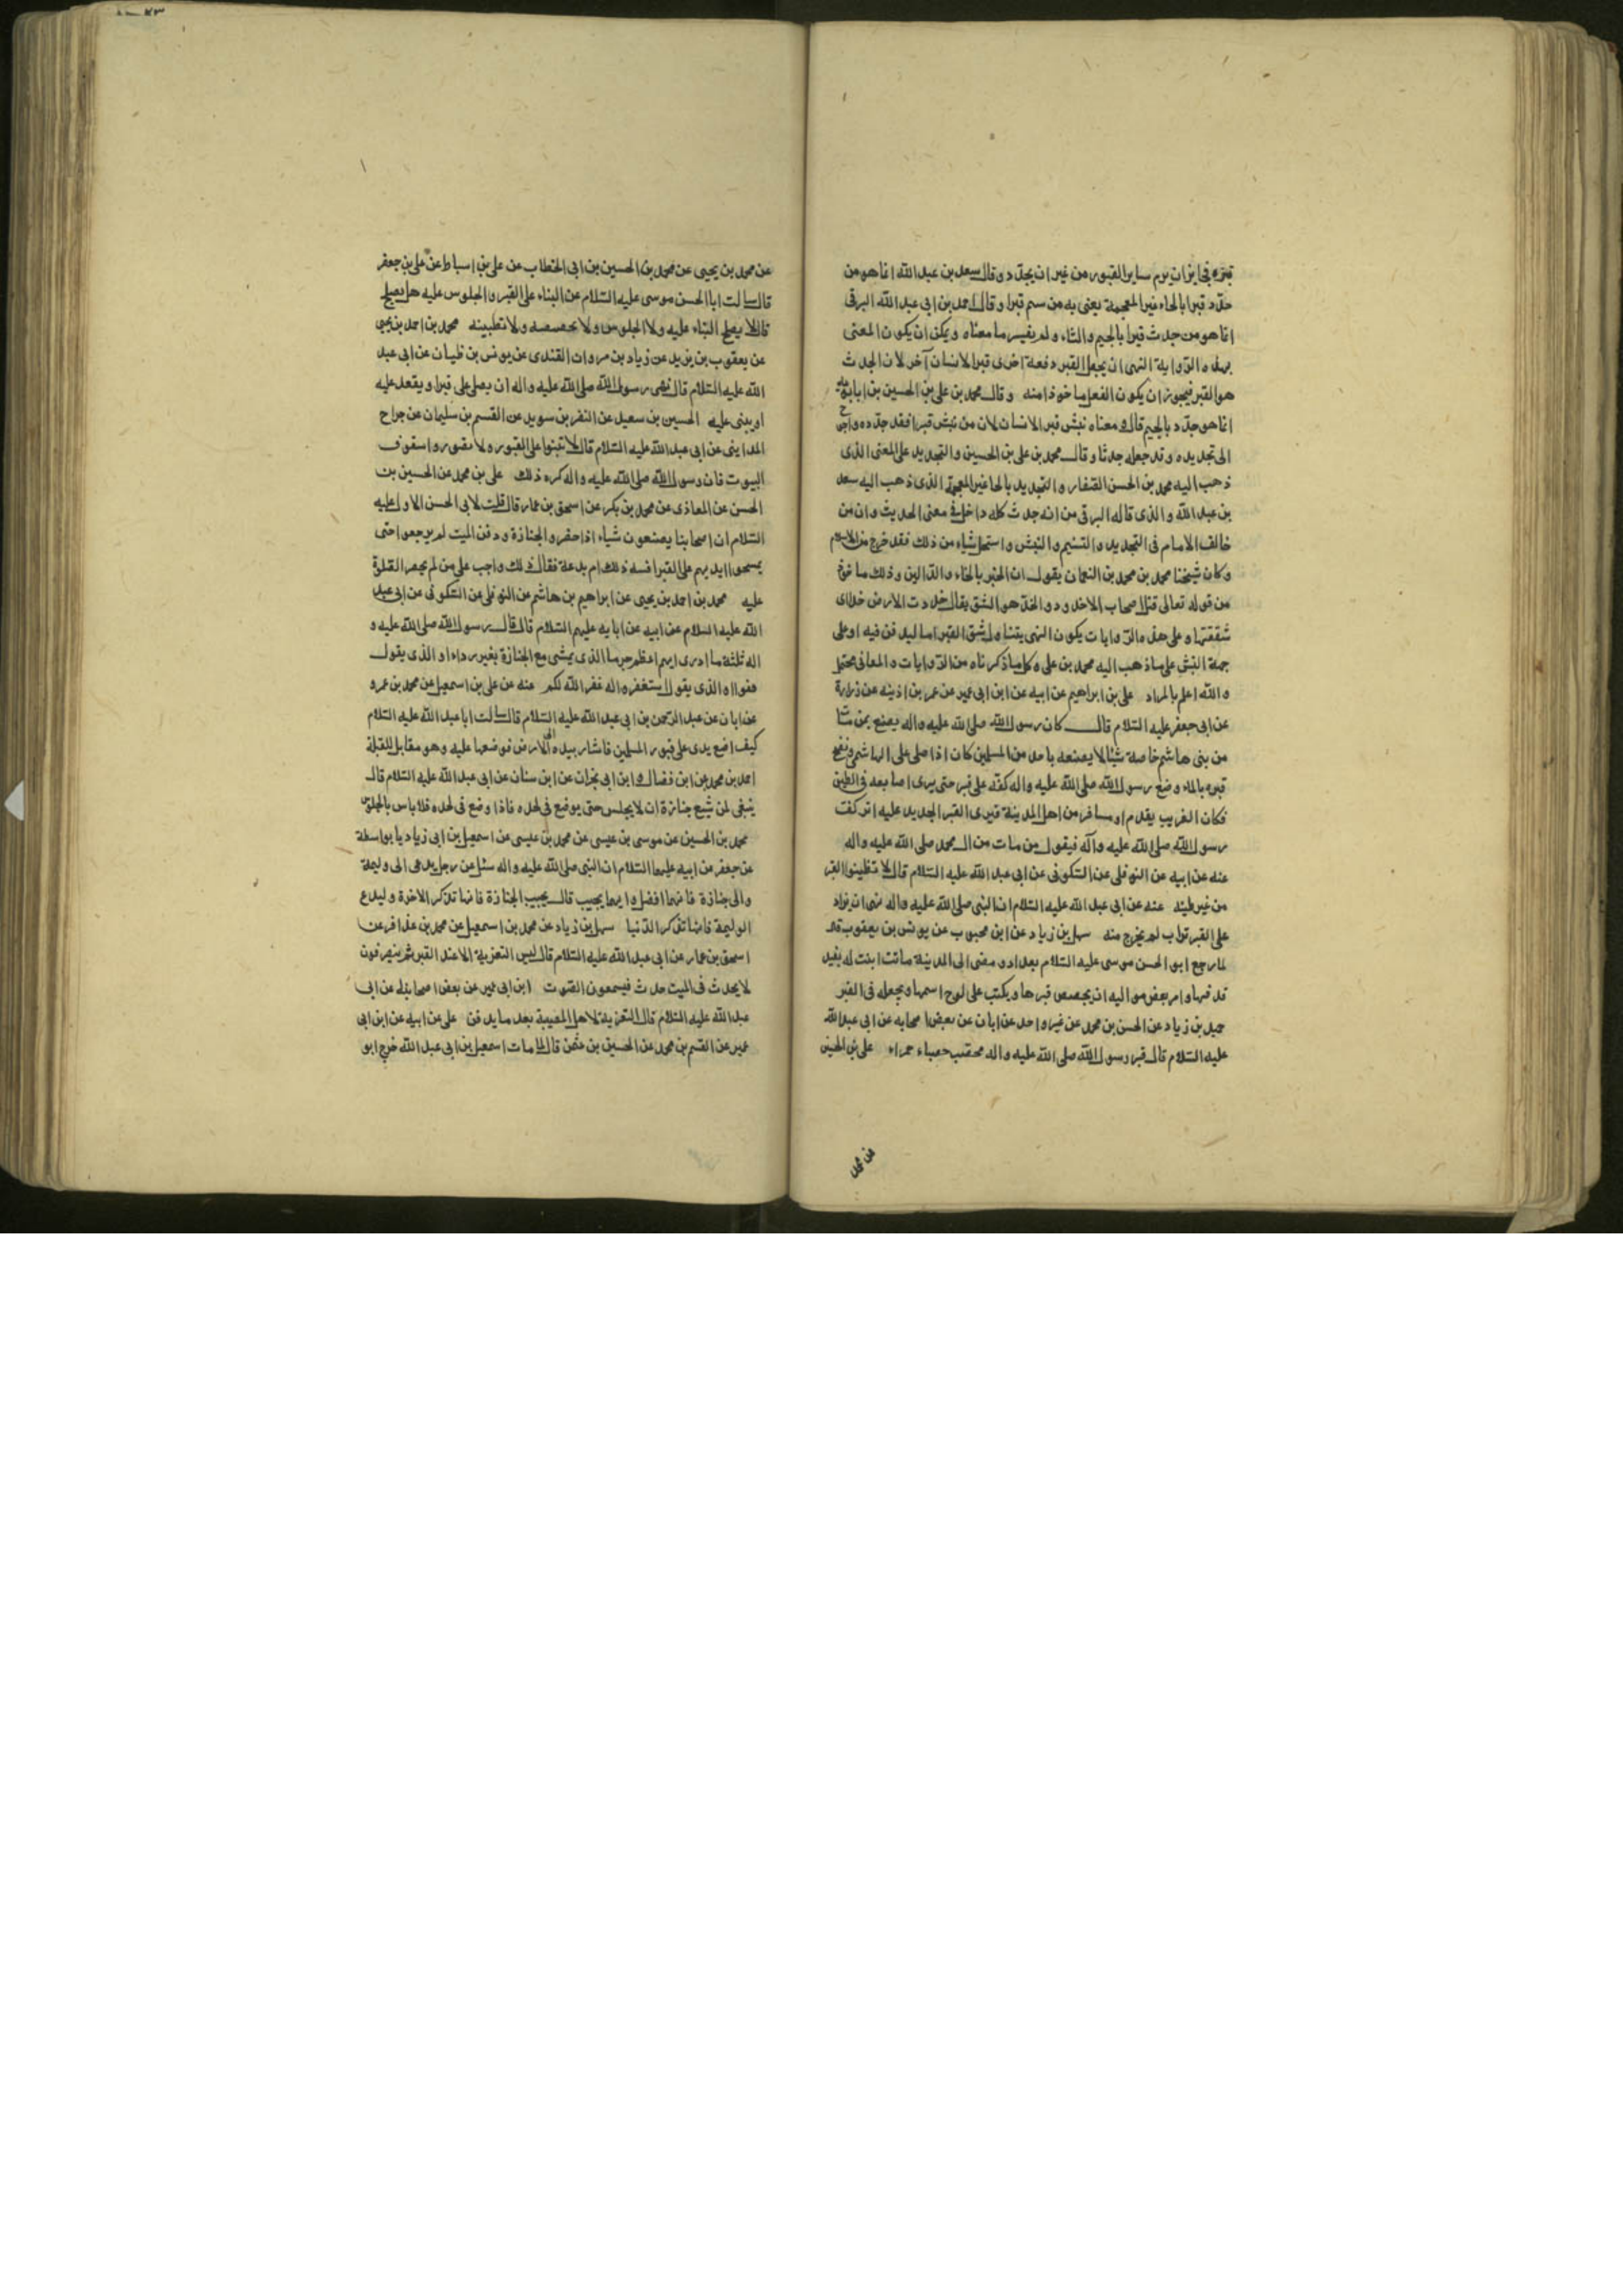 قبره فجايز ان يرم ساير القبور من غير ان يجدد وقال سعد بن عبد الله انما هو من
حدد قبرا بالحاء غير المعجمة يعنى به من سنم قبرا وقال احمد بن ابى عبد الله البرقى
انما هو من جدث قبرا بالجيم والثاء ولم يفسر ما معناه ويمكن ان يكون المعنى
بهذه الرواية النهى ان يجعل القبر دفعة اخرى قبرا لانسان آخر لان الجدث
هو القبر فيجوز ان يكون الفعل ماخوذا منه وقال محمد بن على بن الحسين بن بابويه
انما هو جدد بالجيم قال ومعناه نبش قبر الانسان لان من نبش قبرا فقد جدده واحوج
الى تجديده وقد جعله جدثا وقال محمد بن على بن الحسين والتجديد على المعنى الذى
ذهب اليه محمد بن الحسن الصفار والتحديد بالحا غير المعجمة الذى ذهب اليه سعد
بن عبد الله والذى قاله البرقى من انه جدث كله داخل فى معنى الحديث وان من
خالف الامام فى التجديد والتسنيم والنبش واستحل شياء من ذلك فقد خرج من الاسلام
وكان شيخنا محمد بن محمد بن النعمان يقول ان الخبر بالخاء والدالين وذلك ماخوذ
من قوله تعالى قتل اصحاب الاخدود والخد هو الشق يقال خددت الارض خدا اى
شققتها وعلى هذه الروايات يكون النهى يتناول شق القبر اما ليدفن فيه او على
جهة النبش على ما ذهب اليه محمد بن على وكل ما ذكرناه من الروايات والمعانى محتمل
والله اعلم بالمراد على بن ابراهيم عن ابيه عن ابن ابى عمير عن عمر بن اذينه عن زرارة
عن ابى جعفر عليه السلام قال كان رسول الله صلى الله عليه واله يصنع بمن مات
من بنى هاشم خاصة شيئا لا يصنعه باحد من المسلمين كان اذا صلى على الهاشمى ونضح
قبره بالماء وضع رسول الله صلى الله عليه واله كفه على قبر حتى يرى اصابعه فى الطين
فكان الغريب يقدم او مسافر من اهل المدينة فيرى القبر الجديد عليه اثر كف
رسول الله صلى الله عليه وآله فيقول من مات من ال محمد صلى الله عليه واله
عنه عن ابيه عن النوفلى عن السكونى عن ابى عبد الله عليه السلام قال لا تطينوا القبر
من غير طينه عنه عن ابى عبد الله عليه السلام ان النبى صلى الله عليه واله نهى ان يزاد
على القبر تراب لم يخرج منه سهل بن زياد عن ابن محبوب عن يونس بن يعقوب قال
لما رجع ابو الحسن موسى عليه السلام بغداد ومضى الى المدينة ماتت ابنت له بفيد
فدفنها وامر بعض مواليه ان يجصص قبرها ويكتب على لوح اسمها ويجعله فى القبر
حميد بن زياد عن الحسن بن محمد عن غير واحد عن ابان عن بعض اصحابه عن ابى عبد الله
عليه السلام قال قبر رسول الله صلى الله عليه واله محصب حصباء حمراء على بن الحسين
عن محمد
عن محمد بن يحيى عن محمد بن الحسين بن ابى الخطاب عن على بن اسباط عن على بن جعفر
قال سالت ابا الحسن موسى عليه السلام عن البناء على القبر والجلوس عليه هل يصلح
قال لا يصلح البناء عليه ولا الجلوس ولا تجصيصه ولا تطيينه محمد بن احمد بن يحيى
عن يعقوب بن يزيد عن زياد بن مروان القندى عن يونس بن ظبيان عن ابى عبد
الله عليه السلام قال نهى رسول الله صلى الله عليه واله ان يصلى على قبرا ويقعد عليه
او يبنى عليه الحسين بن سعيد عن النضر بن سويد عن القسم بن سليمان عن جراح
المداينى عن ابى عبد الله عليه السلام قال لا تبنوا على القبور ولا تصوروا سقوف
البيوت فان رسول الله صلى الله عليه واله كره ذلك على بن محمد عن الحسين بن
الحسن عن المعاذى عن محمد بن بكر عن اسحق بن عمار قال قلت لابى الحسن الاول عليه
السلام ان اصحابنا يصنعون شياء اذا حضروا الجنازة ودفن الميت لم يرجعوا حتى
يمسحوا ايديهم على القبر افسنه ذلك ام بدعة فقال ذلك واجب على من لم يحضر الصلوة
عليه محمد بن احمد بن يحيى عن ابراهيم بن هاشم عن النوفلى عن السكونى عن ابى عبد
الله عليه السلام عن ابيه عن ابايه عليهم السلام قال قال رسول الله صلى الله عليه و
اله ثلثة ما ادرى ايهم اعظم جرما الذى يمشى مع الجنازة بغير رداء او الذى يقول
قفوا او الذى يقول استغفروا له غفر الله لكم عنه عن على بن اسمعيل عن محمد بن عمرو
عن ابان عن عبد الرحمن بن ابى عبد الله عليه السلام قال سالت ابا عبد الله عليه السلام
كيف اضع يدى على قبور المسلمين فاشار بيده الى الارض فوضعها عليه وهو مقابل للقبلة
احمد بن محمد عن ابن فضال وابن ابى نجران عن ابن سنان عن ابى عبد الله عليه السلام قال
ينبغى لمن شيع جنازة ان لا يجلس حتى يوضع فى لحده فاذا وضع فى لحده فلا باس بالجلوس
محمد بن الحسين عن موسى بن عيسى عن محمد بن عيسى عن اسمعيل بن ابى زياد يا بواسطة
عن جعفر عن ابيه عليهما السلام ان النبى صلى الله عليه واله سئل عن رجل يدعى الى وليمة
والى جنازة فانهما افضل وايهما يجيب قال يجيب الجنازة فانها تذكر الاخرة وليدع
الوليمة فانها تذكر الدنيا سهل بن زياد عن محمد بن اسمعيل عن محمد بن عذافر عن
اسحق بن عمار عن ابى عبد الله عليه السلام قال ليس التعزية الا عند القبر ثم ينصرفون
لا يحدث فى الميت حدث فيسمعون الصوت ابن ابى عمير عن بعض اصحابنا عن ابى
عبد الله عليه السلام قال التعزية لاهل المصيبة بعد ما يدفن على عن ابيه عن ابن ابى
عمير عن القسم بن محمد عن الحسين بن عثمن قال لما مات اسمعيل بن ابى عبد الله خرج ابو